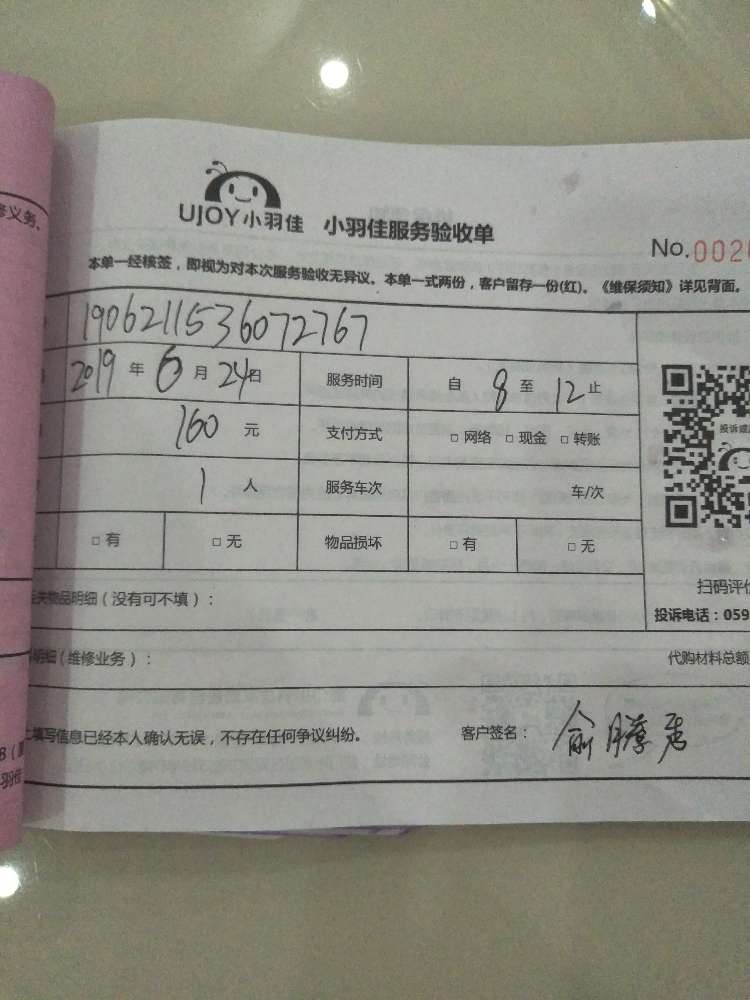 UJOY小羽佳 小羽佳服务验收单
No.0020
本单一经核签，即视为对本次服务验收无异议。本单一式两份，客户留存一份(红)。《维保须知》详见背面。
1906211536072767
2019 年 6 月 24日 服务时间 自 8 至 12 止
160 元 支付方式 □ 网络 □ 现金 □ 转账
1 人 服务车次 车/次
□ 有 □ 无 物品损坏 □ 有 □ 无
扫码评价
物品明细（没有可不填）：
投诉电话：059
明细（维修业务）： 代购材料总额
填写信息已经本人确认无误，不存在任何争议纠纷。 客户签名：俞腾